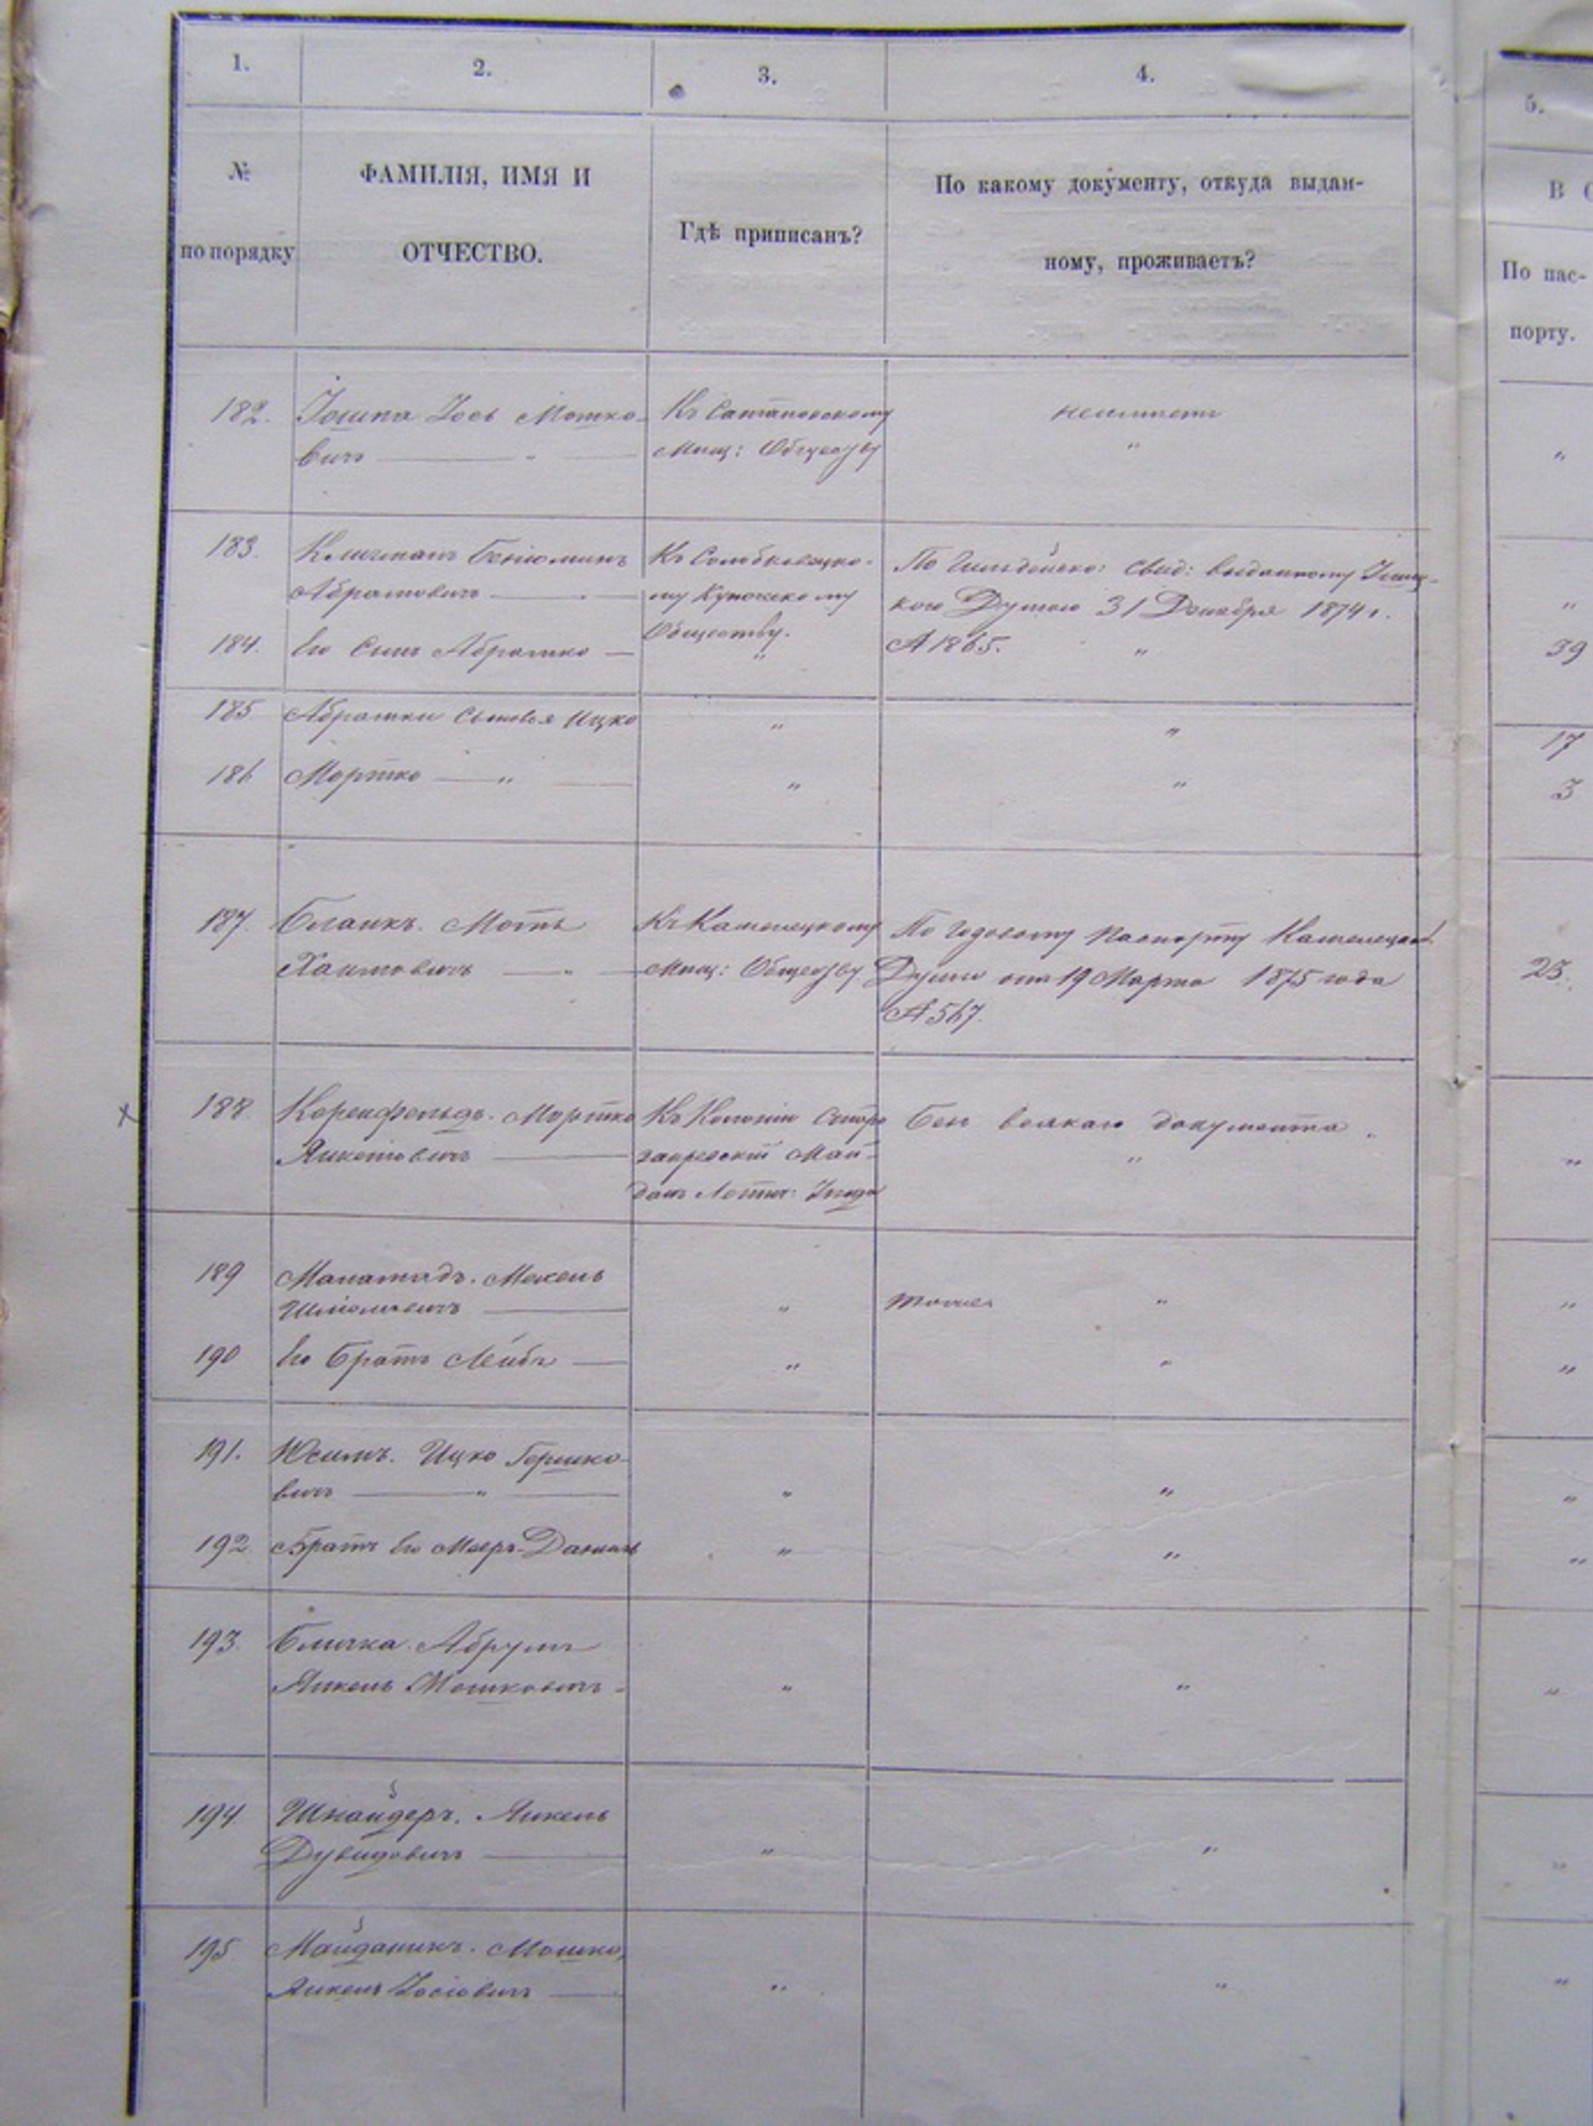 1.
2.
3.
4.
5.
№
по порядку
ФАМИЛІЯ, ИМЯ И
ОТЧЕСТВО.
Гдѣ приписанъ?
По какому документу, откуда выдан-
ному, проживаетъ?
В
По пас-
порту.
182. Іосъ Мотко-
вичъ
Къ Сатановскому
Мѣщ: Обществу
неимѣетъ
"
"
183. Клигманъ Беніоминъ
Абрамовичъ
Къ Солобковецко-
му Купеческому
Обществу.
По Гильдейско: Свид: выданному Ушиц-
кою Думою 31 Декабря 1874 г.
№ 1865.
"
184. Его Сынъ Абрамко
"
"
39
185 Абрамки Сыновья Ицко
"
"
17
186 Мортко "
"
"
3
187. Бланкъ. Моть
Хаимовичъ "
Къ Каменецкому
Мѣщ: Обществу
По Годовому Паспорту Каменецкой
Думы отъ 19 Марта 1875 года
№ 567.
25.
188 Коренфельдъ. Мортко
Янкелевичъ
Къ Колоніи Старо
Май-
данъ Летич: Уѣзда
Безъ всякаго документа "
"
"
189 Мекель
Шмулевичъ
"
тоже "
"
190 Его Братъ Лейбъ
"
"
"
191. Юсимъ. Ицко Гершко-
вичъ "
"
"
"
192. Братъ Его Мееръ-Даніилъ
"
"
"
193. Бличка. Абрумъ
Янкель Мошковичъ
"
"
"
194 Шнайдеръ. Янкель
Дувидовичъ
"
"
"
195 Майданикъ. Мошко,
Янкель Іосіовичъ
"
"
"